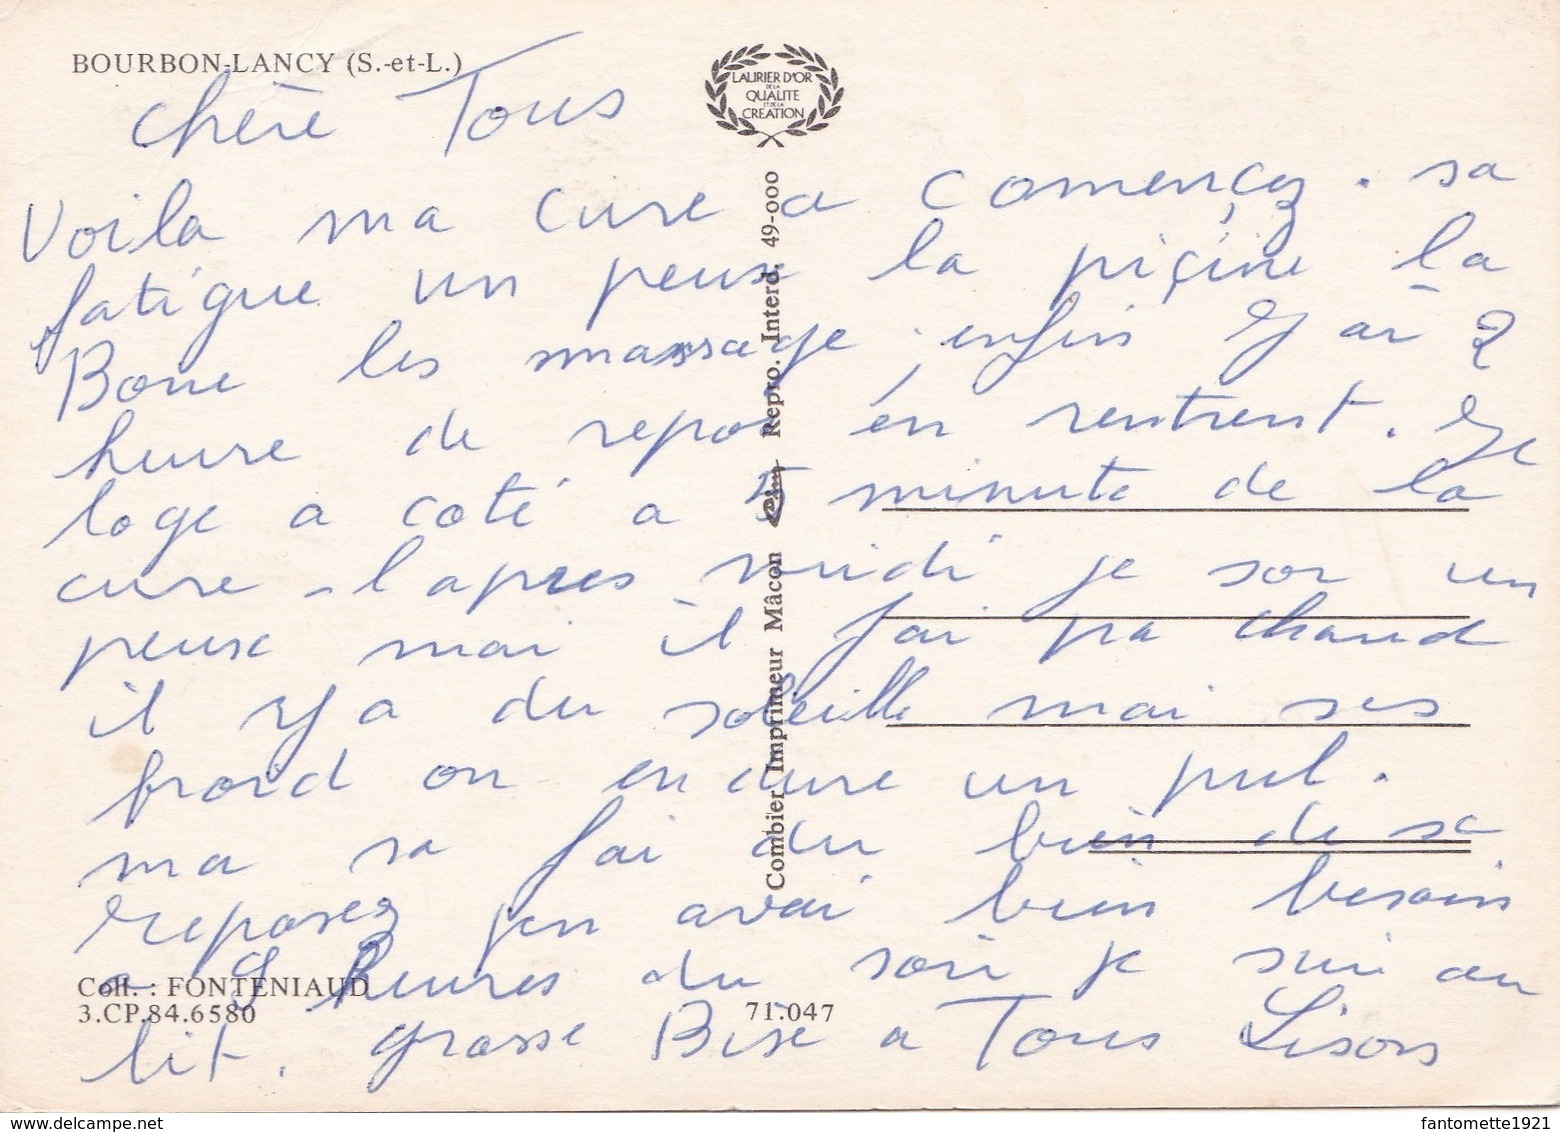 BOURBON-LANCY (S.-et-L.)
LAURIER D'OR
DE LA
QUALITE
ET DE LA
CREATION
chère Tous
Voila ma cure a començez. sa
fatigue un peux la piçine la
Bone les massage, enfin J ai 2
heure de repos en rentrent. Je
loge a coté a 5 minute de la
cure - l apres midi je sor un
peux mai il fai pa chaud
il y a du soleille mai ses
froid on endure un pul.
ma sa fai du bien de se
reposez jen avai bien besoin
a 9 heures du soir je sui au
lit. grosse Bise a Tous Lison
Combier Imprimeur Mâcon Repro. Interd. 49-000
Coll. : FONTENIAUD
3.CP.84.6580
71.047
fantomette1921
delcampe.net